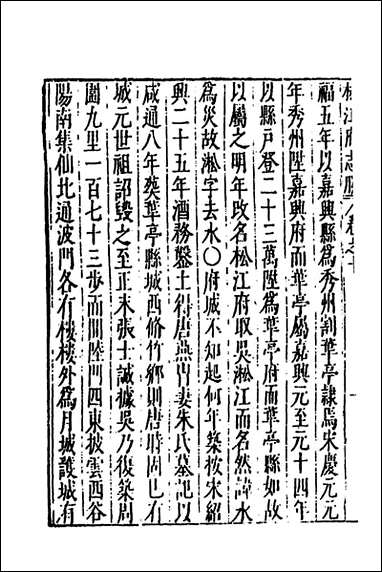 松江府志勝
福五年以嘉興縣爲秀州割華亭隸焉宋慶元元
年秀州陞嘉興府而華亭屬嘉興元至元十四年
以縣戸登二十三萬陞爲華亭府而華亭縣如故
以屬之明年改名松江府取吳淞江而名然諱水
爲災故淞字去水〇府城不知起何年築按宋紹
興二十五年酒務鑿土得唐燕胄妻朱氏墓記以
咸通八年葬華亭縣城西脩竹鄉則唐時固已有
城元世祖詔毀之至正末張士誠據吳乃復築周
圍九里一百七十三歩而闢陸門四東披雲西谷
陽南集仙北通波門各有樓樓外爲月城護城有